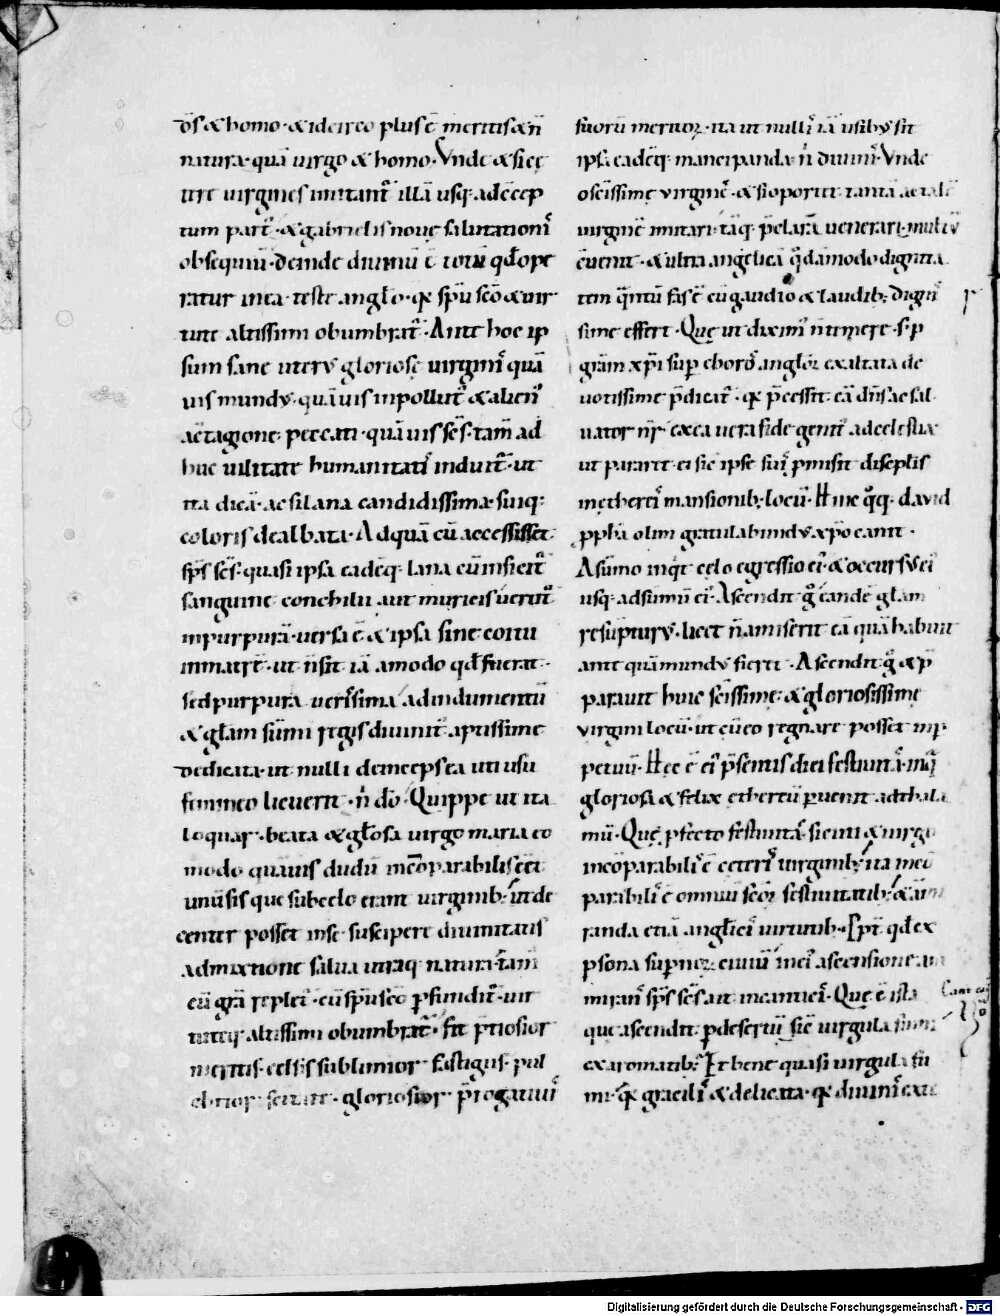 d̄s & homo · & idcirco plus ē meritis & n̄
natura · quā uirgo & homo · Vnde & sicę
tirę uirgines imitant᷑ illā usq; adeęcep
tum part᷑ · & gabrielis nouę salutationı᷑
obsequiū · deinde diuinū ē totū qđ ope
ratur in ea · teste angło · qa sp̄u sc̄o & uir
tute altissimi obumbrat᷑ · Ante hoc ip
sum sane uterꝰ gloriosę uirginı᷑ quā
uis mundꝰ · quāuis inpollut᷑ & alien᷑
a c̄tagione peccati · quāuis sc̄s · tam̄ ad
huc uilitate humanitati᷑ induit᷑ · ut
ita dicā · ac si lana candidissima suiq;
coloris dealbata · Ad quā cū accessisset
sp̄s sc̄s · quasi ipsa eadēq; lana cū inficit᷑
sanguine conchilii aut muricis uertit᷑
in purpurā · uersa ē & ipsa sine coitu
in matrē · ut n̄ sit iā amodo qđ fuerat ·
sed purpura uerissima ad indumentū
& głam sūmi regis diuinit᷑ aptissime
dedicata · ut nulli deinceps ea uti usu
femineo licuerit · n̄ dō · Quippe ut ita
loquar · beata & głosa uirgo maria eo
modo quāuis dudū incōparabilis cęt
unūsis que sub celo erant uirginib; ut de
center posset in se suscipere diuinitatis
admixtione salua utraq; natura · tam̄
cū grā repleı᷑ · cū sp̄u sc̄o p̄fundit᷑ · uir
tuteq; altissimi obumbrat᷑ · fit p̄tiosior
meritis · celsis sublimior fastigiis · pul
chrior · gloriosior p̄rogatiui᷑
suorū meritoꝝ · ita ut nulli᷑ iā usibꝰ sit
ipsa eadēq; mancipanda · n̄ diuini᷑ · Vnde
o sc̄issimę uirginē · & si oportet tantā ac talē
uirginē imitari · tāq; p̄clarā uenerari · multū
cōuenit · & ultra angelicā q̄dāmodo dignita
tem q̄ntū fas ē cū gaudio & laudib; digni᷑
sime effert · Quę ut diximı᷑ n̄ inmere · s; p
grām xp̄i sup choros angłoꝝ exaltata de
uotissime p̄dicat᷑ · qa p̄cessit eā dn̄s ac sal
uator nr̄ ex ea uera fide genit᷑ ad cęlestia
ut pararet ei sic ipse sui᷑ p̄misit discip̄lis
in ętherei᷑ mansionib; locū · Hinc q̊q; dauid
p̄ph̄a olim gratulabundꝰ xp̄o canit ·
A sūmo inqit cęlo egressio ei᷑ · & occursꝰ ei᷑
usq; ad sūmū ei᷑ · Ascendit g̊ eande głam
resūpturꝰ · licet n̄ amiserit eā quā habuit
ante quā mundꝰ fieret · Ascendit g̊ & p̄
parauit huic sc̄issimę · & gloriosissimę
uirgini locū · ut cū eo regnare posset inp
petuū · Hęc ē ei᷑ p̄sentis diei festiuit᷑ · in q̄
gloriosa & felix ethereū puenit ad thala
mū · Quę pfecto festiuita᷑ sicuti & uirgo
incōparabili᷑ ē ceteri᷑ uirginib; ita incō
parabili᷑ ē omniū sc̄oꝝ festiuitatib; & am
randa etiā angelici᷑ uirtutib; · Ip̄t qđ ex
psona supnoꝝ ciuiū in ei᷑ ascensione am
mirant᷑ sp̄s sc̄s ait in cantici᷑ · Quę ē ista
que ascendit p desertū sic uirgula fumi
ex aromatib; Et bene quasi uirgula fu
mi · qa gracili᷑ & delicata · qa diuini᷑ ext